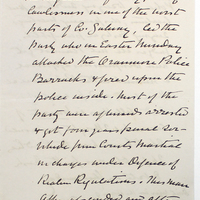 lawlessness in one of the worst
parts of Co. Galway, led the
party who on Easter Tuesday
attacked the Oranmore Police
Barracks & fired upon the
police inside. Most of the
party were afterwards arrested
& got four years penal ser-
vitude from Courts Martial
on charges under Defence of
Realm Regulations. This man